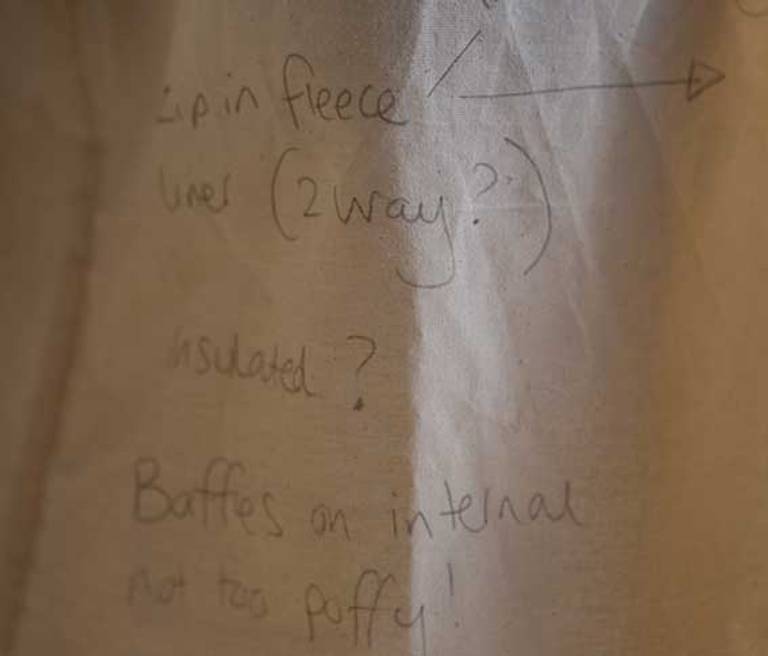 zip in fleece
liner (2 way?)
insulated?
Baffles on internal
not too puffy!